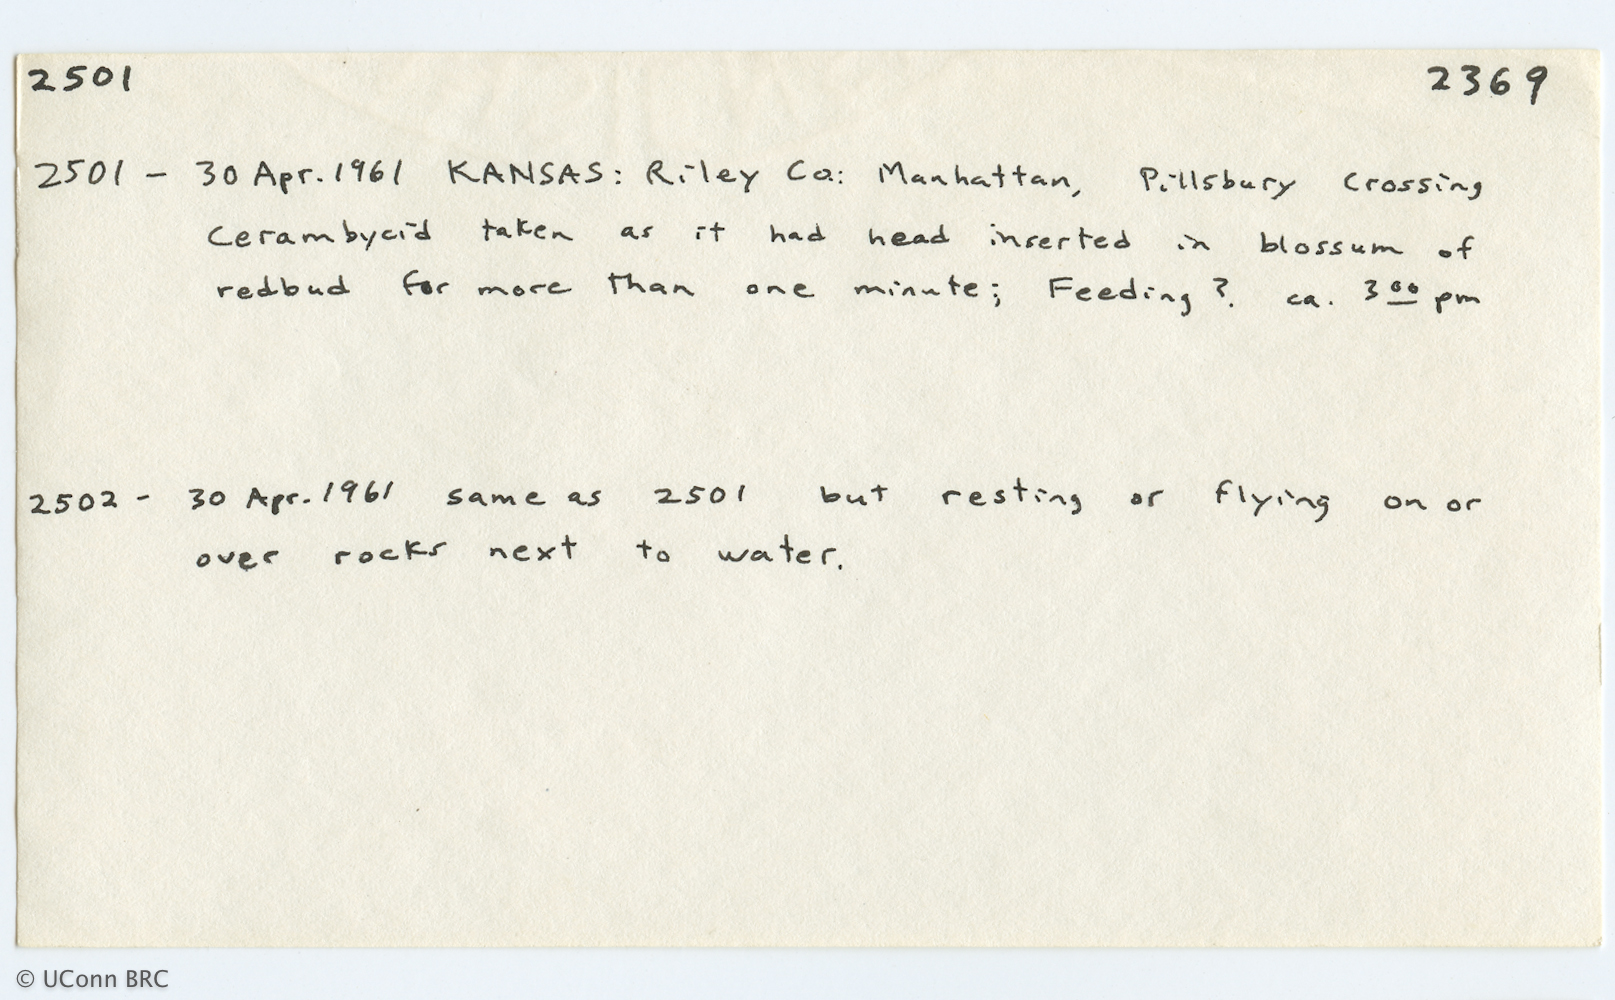 2501 2369
2501 - 30 Apr. 1961 KANSAS: Riley Co: Manhattan, Pillsbury Crossing
Cerambycid taken as it had head inserted in blossum of
redbud for more than one minute; Feeding?. ca. 3 00 pm
2502 - 30 Apr. 1961 same as 2501 but resting or flying on or
over rocks next to water.
© UConn BRC